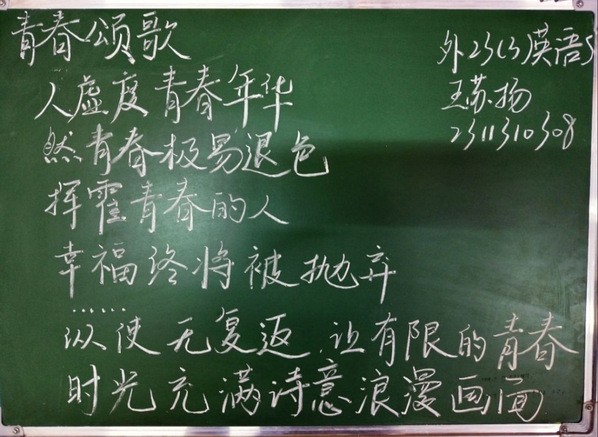 青春颂歌
外23(3)英语S
王苏扬
2311310308
人虚度青春年华
然青春极易退色
挥霍青春的人
幸福终将被抛弃
……
以使无复返,让有限的青春
时光充满诗意浪漫画面